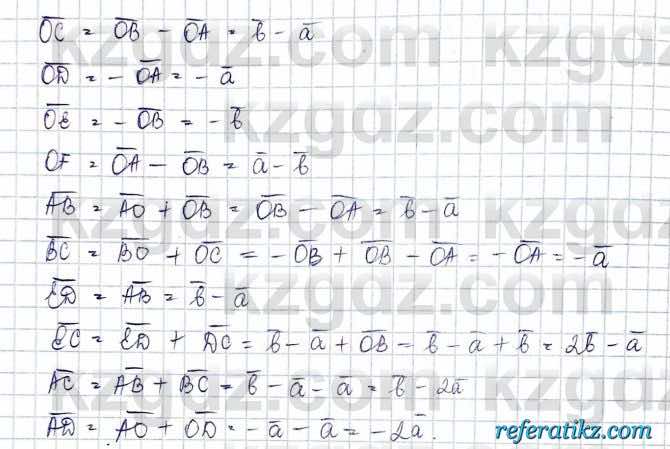 OC̅ = OB̅ - OA̅ = b̅ - a̅
OD̅ = - OA̅ = - a̅
OE̅ = - OB̅ = - b̅
OF̅ = OA̅ - OB̅ = a̅ - b̅
AB̅ = AO̅ + OB̅ = OB̅ - OA̅ = b̅ - a̅
BC̅ = BO̅ + OC̅ = - OB̅ + OB̅ - OA̅ = - OA̅ = - a̅
ED̅ = AB̅ = b̅ - a̅
EC̅ = ED̅ + DC̅ = b̅ - a̅ + OB̅ = b̅ - a̅ + b̅ = 2b̅ - a̅
AC̅ = AB̅ + BC̅ = b̅ - a̅ - a̅ = b̅ - 2a̅
AD̅ = AO̅ + OD̅ = - a̅ - a̅ = - 2a̅.
kzgdz.com
referatikz.com